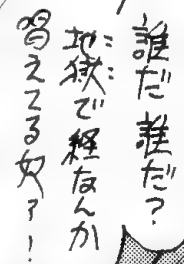 誰だ誰だ?
地獄で経なんか
唱えてる奴ァ!